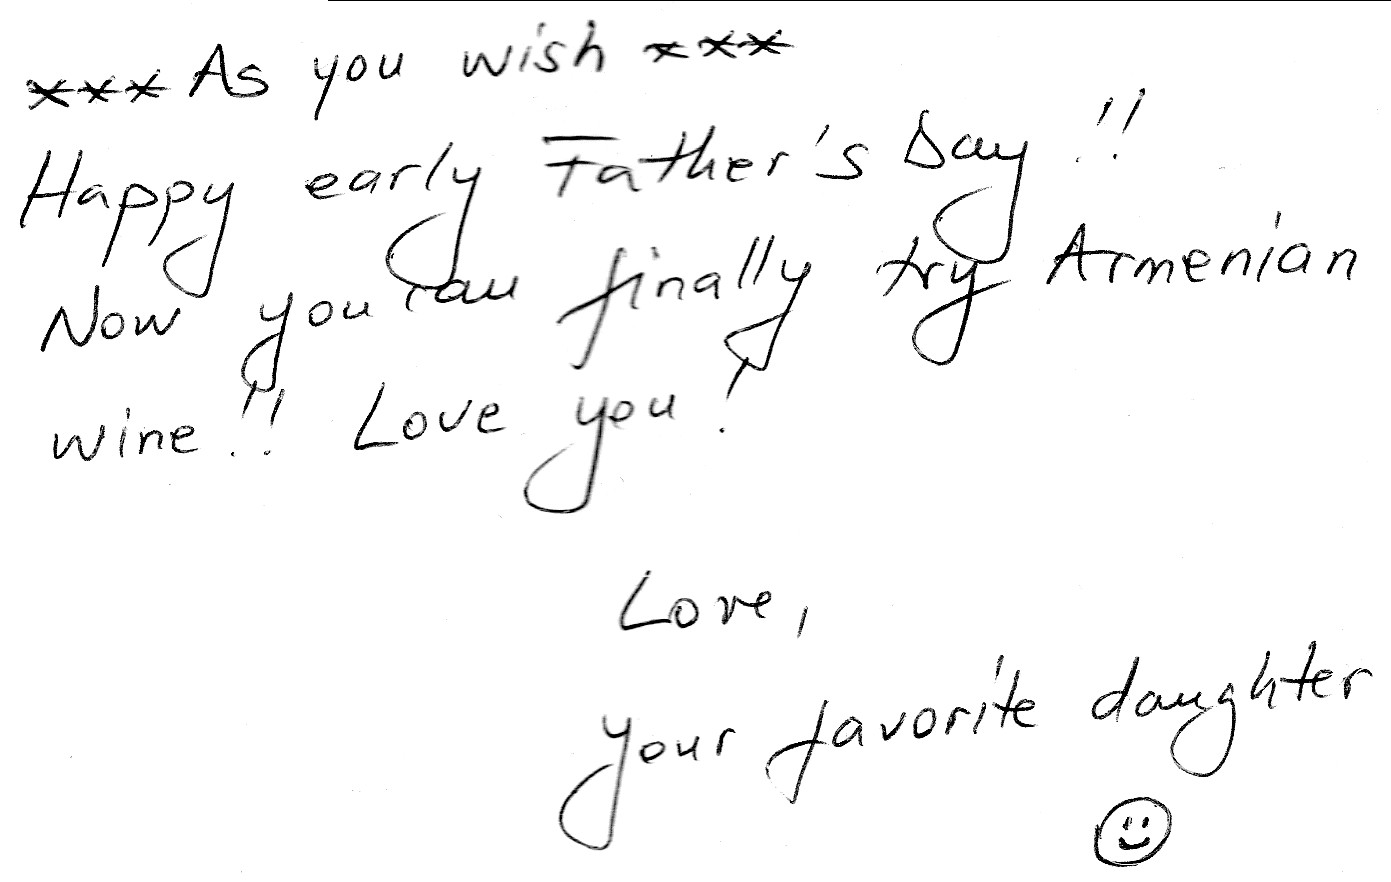 *** As you wish ***
Happy early Father's Day!!
Now you can finally try Armenian
wine!! Love you!
Love,
your favorite daughter